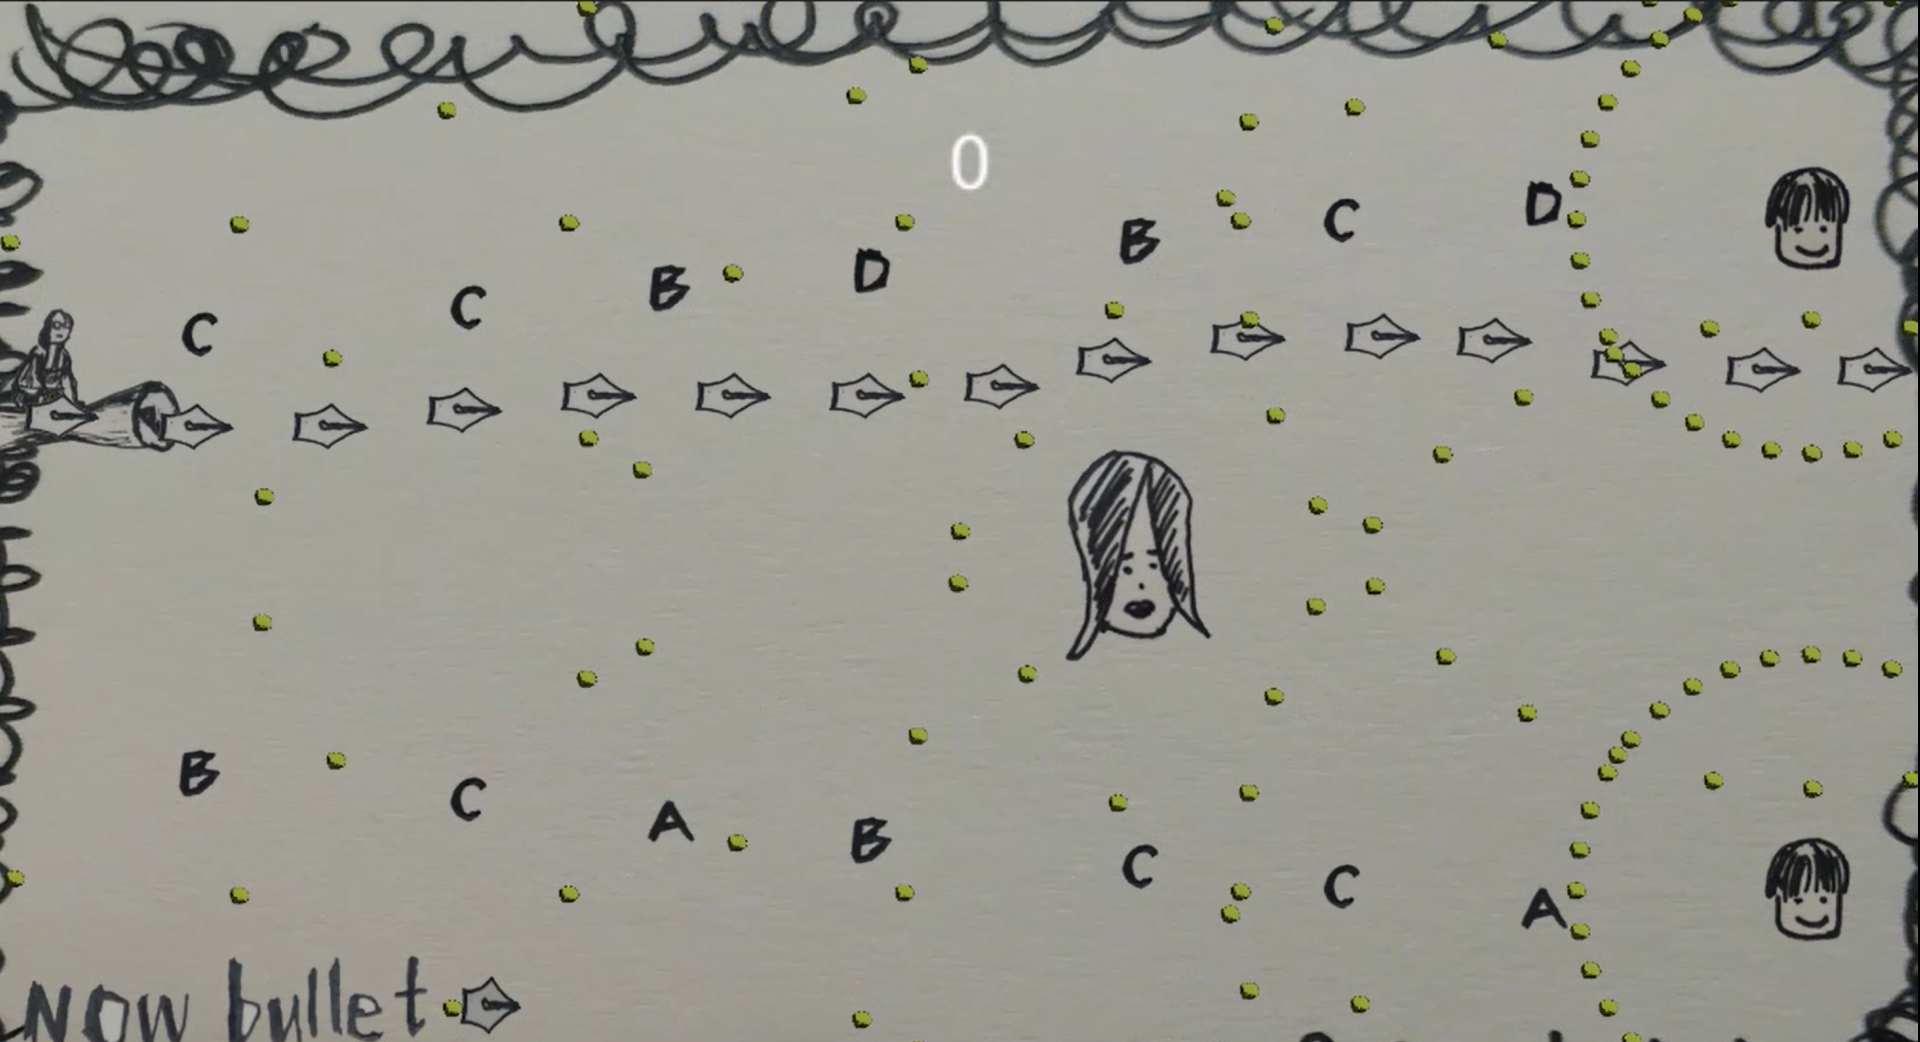 0
C C B D B C D
B C A B C C A
Now bullet